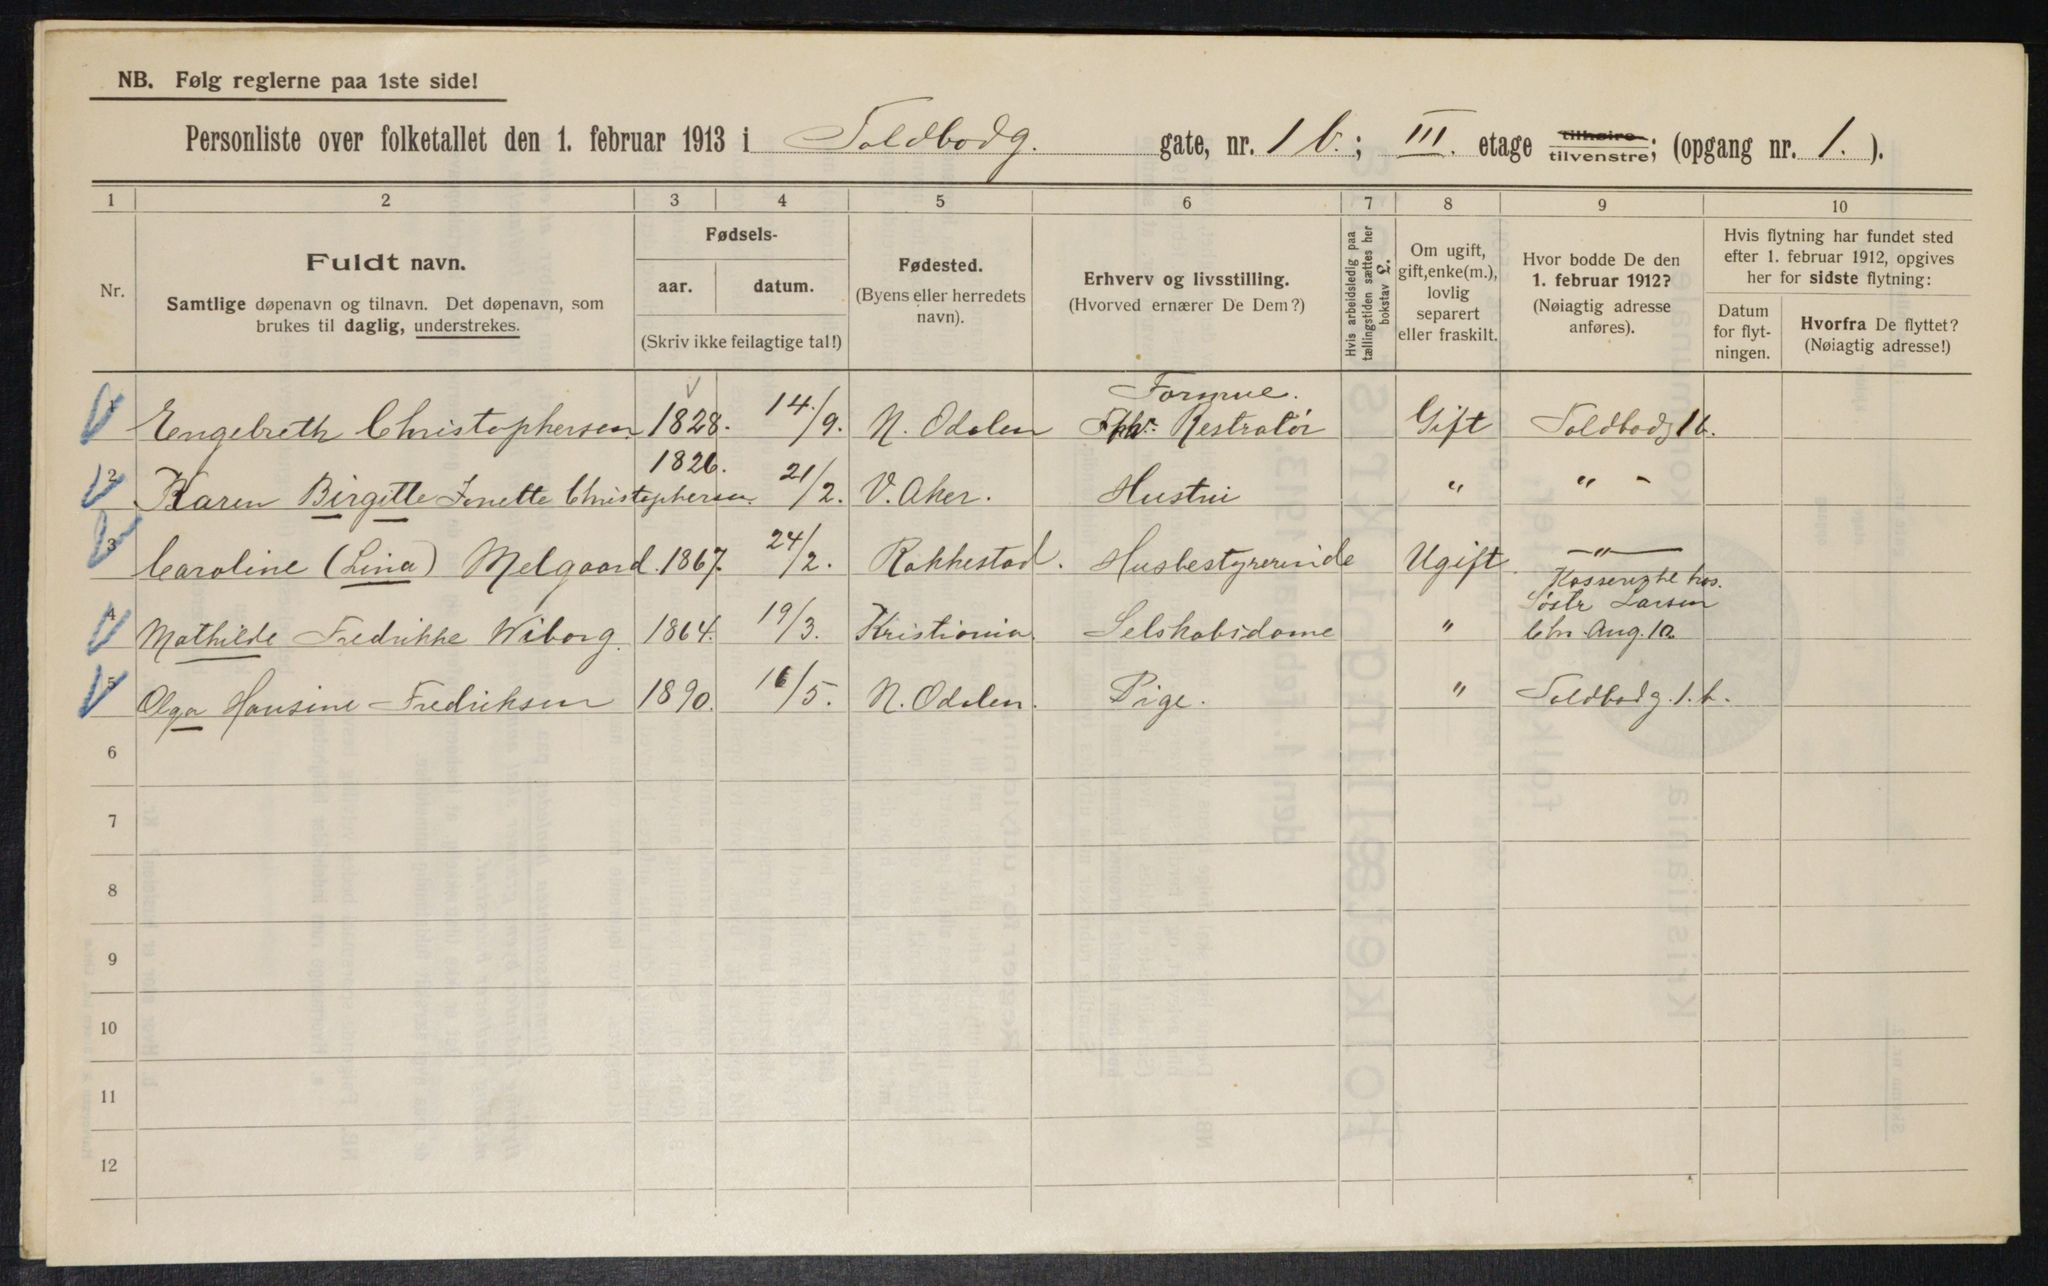 NB. Følg reglerne paa 1ste side!
Personliste over folketallet den 1. februar 1913 i Toldbodg. gate, nr. 1 b.; III. etage tilhøire tilvenstre; (opgang nr. 1.).
1 2 3 4 5 6 7 8 9 10
Nr.
Fuldt navn.
Samtlige døpenavn og tilnavn. Det døpenavn, som
brukes til daglig, understrekes.
Fødsels-
aar. datum.
(Skriv ikke feilagtige tal!)
Fødested.
(Byens eller herredets
navn).
Erhverv og livsstilling.
(Hvorved ernærer De Dem?)
Hvis arbeidsledig paa
tællingstiden sættes her
bokstav £.
Om ugift,
gift, enke(m.),
lovlig
separert
eller fraskilt.
Hvor bodde De den
1. februar 1912?
(Nøiagtig adresse
anføres).
Hvis flytning har fundet sted
efter 1. februar 1912, opgives
her for sidste flytning:
Datum
for flyt-
ningen.
Hvorfra De flyttet?
(Nøiagtig adresse!)
Formue.
1 Engebreth Christophersen. 1828. 14/9. N. Odalen Gift Toldbodg 1 b.
2 Karen Birgitte Jenette Christophersen. 1826. 21/2. V. Aker. Hustru " " -
3 Caroline (Lina) Melgaard. 1867. 24/2. Rakkestad. Husbestyrerinde Ugift. —"—
hos.
Søstr Larsen
4 Mathilde Fredrikke Wiborg. 1864. 19/3. Kristiania. Selskabsdame " Chr. Aug. 10.
5 Olga Hansine Fredriksen 1890. 16/5. N. Odalen. Pige. " Toldbodg. 1. b.
6
7
8
9
10
11
12